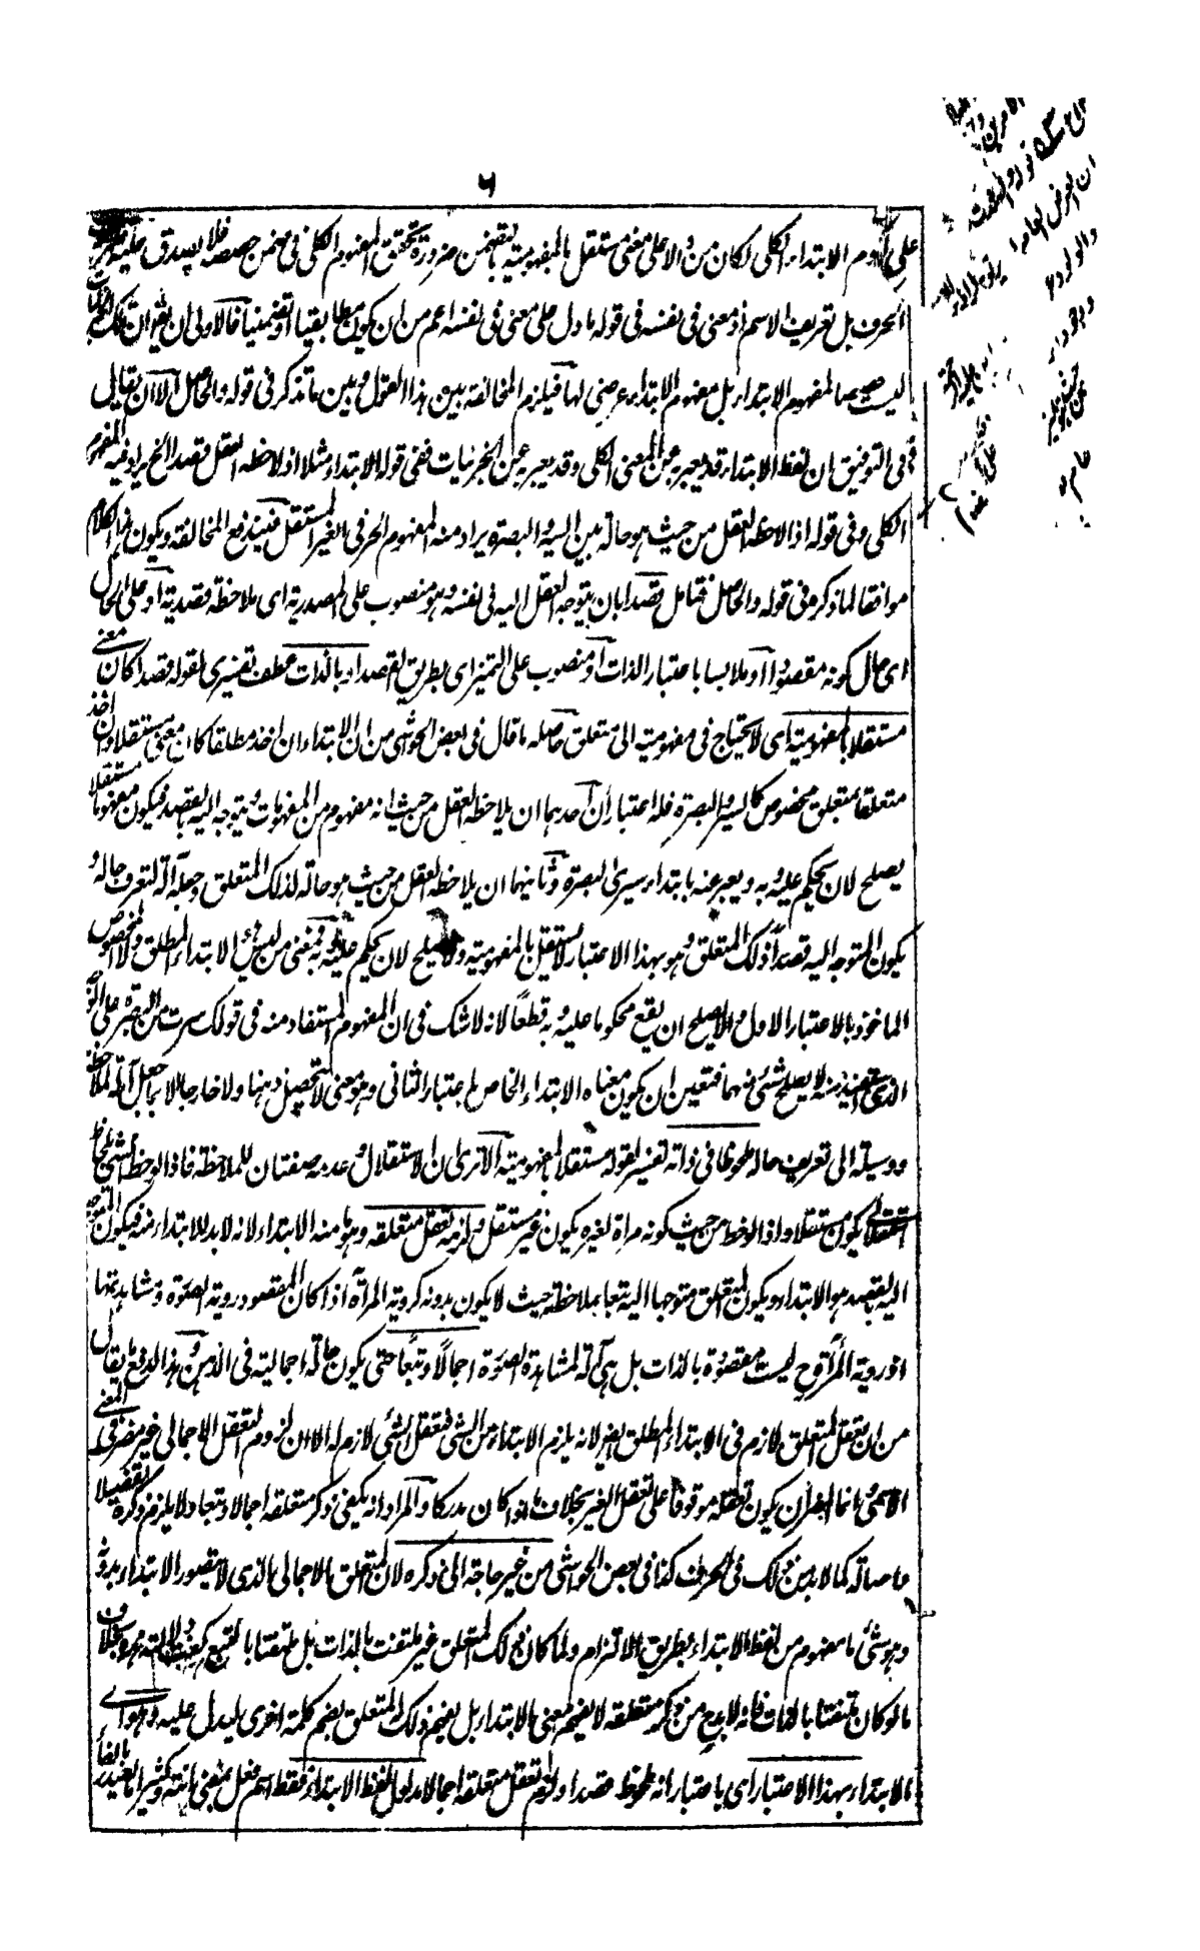 ٦
على مفهوم الابتداء الكلى لكان من والا على معنى مستقل بالمفهومية بالتضمن ضرورة تحقق المفهوم الكلى فى ضمن حصصه فلا يصدق عليه
الحرف بل تعريف الاسم اذ معنى فى نفسه فى قوله ما دل على معنى فى نفسه اعم من ان يكون مطابقيا او تضمنيا فالاولى ان يقال ان تلك
ليست حصصا لمفهوم الابتداء بل مفهوم الابتداء عرضى لها فيلزم المخالفة بين هذا القول وبين ما تذكر فى قوله والحاصل الا ان يقال
فى التوفيق ان لفظ الابتداء قد يعبر به عن المعنى الكلى وقد يعبر به عن الجزئيات ففى قوله الابتداء مثلا اذا لاحظه العقل قصدا الخ يراد فيه المفهوم
الكلى وفى قوله اذا لاحظه العقل من حيث هو حالة بين السير والبصرة يراد منه المفهوم الحرفى الغير المستقل فيندفع المخالفة ويكون هذا الكلام
موافقا لما ذكره فى قوله والحاصل فتامل قصدا بان يتوجه العقل اليه فى نفسه وهو منصوب على المصدرية اى ملاحظة قصدية او على الحال
اى حال كونه مقصودا او ملابسا باعتبار الذات او منصوب على التميز اى بطريق القصد او بالذات عطف تفسيرى لقوله قصدا كان معنى
مستقلا بالمفهومية اى لا يحتاج فى مفهوميته الى متعلق حاصله ما قال فى بعض الحواشى من ان الابتداء ان اخذ مطلقا كان معنى مستقلا وان اخذ
متعلقا بمتعلق مخصوص كالسير والبصرة فله اعتباران احدهما ان يلاحظه العقل من حيث انه مفهوم من المفهومات ويتوجه اليه بالقصد فيكون مفهوما مستقلا
يصلح لان يحكم عليه وبه ويعبر عنه بابتداء سيرى البصرة وثانيهما ان يلاحظه العقل من حيث هو حالة لذلك المتعلق وجعله آلة لتعرف حاله و
يكون المتوجه اليه قصدا ذلك المتعلق وهو بهذا الاعتبار لا يستقل بالمفهومية ولا يصلح لان يحكم عليه وبه فمعنى من ليس الابتداء المطلق ولا المخصوص
الماخوذ بالاعتبار الاول والا لصلح ان يقع محكوما عليه وبه قطعا لانه لا شك فى ان المفهوم المستفاد منه فى قولك سرت من البصرة على الوجه
الذى يستفيد منه لا يصلح لشئ منهما فتعين ان يكون معناه الابتداء الخاص باعتبار الثانى وهو معنى لا يتحصل ذهنا ولا خارجا الا بما جعل آلة لملاحظة
ووسيلة الى تعريف حاله ملحوظا فى ذاته تفسير لقوله مستقلا بالمفهومية الا ترى ان الاستقلال وعدمه صفتان للملاحظة فاذا لوحظ الشئ بلحاظ
استقلالى يكون مستقلا واذا لوحظ من حيث كونه مرآة لغيره يكون غير مستقل ولزمه تعقل متعلقه وهو ما منه الابتداء لانه لا بد للابتداء منه فيكون المتوجه
اليه بالقصد هو الابتداء ويكون المتعلق متوجها اليه تبعا بملاحظة حيث لا يكون بدونه كروية المرآة اذا كان المقصود روية الصورة ومشاهدتها
اذ روية المرآة ح ليست مقصودة بالذات بل هى آلة لمشاهدة الصورة اجمالا وتبعا حتى يكون حالة اجمالية فى الذهن وبهذا اندفع ما يقال
من ان تعقل المتعلق لازم فى الابتداء المطلق ايضا لانه يلزم الابتداء من الشئ فتعقل الشئ لازم له الا ان لزوم التعقل الاجمالى غير مضر فى المعنى
الاسمى وانما المضر ان يكون تعقله موقوفا على تعقل الغير بخلاف ما اذا كان مدركا والمراد انه يكفى ذكر متعلقه اجمالا وتبعا ولا يلزم ذكره تفصيلا
واصالة كما لا بد من ذلك فى الحرف كذا فى بعض الحواشى من غير حاجة الى ذكره لان المتعلق الاجمالى الذى لا يتصور الابتداء بدونه
وهو شئ ما مفهوم من لفظ الابتداء بطريق الالتزام ولما كان ذلك المتعلق غير ملتفت بالذات بل ملتفتا بالتبع بخلاف
ما لو كان ملتفتا بالذات فانه لا بد ح من ذكر متعلقه لا يفهم معنى الابتداء بل يفهم ذلك المتعلق بضم كلمة اخرى ليدل عليه وهو اى
الابتداء بهذا الاعتبار اى باعتبار انه ملحوظ قصدا ولزم تعقل متعلقه اجمالا مدلول لفظ الابتداء فقط اسم فعل بمعنى انته وكثيرا ما يصدر بالفاء